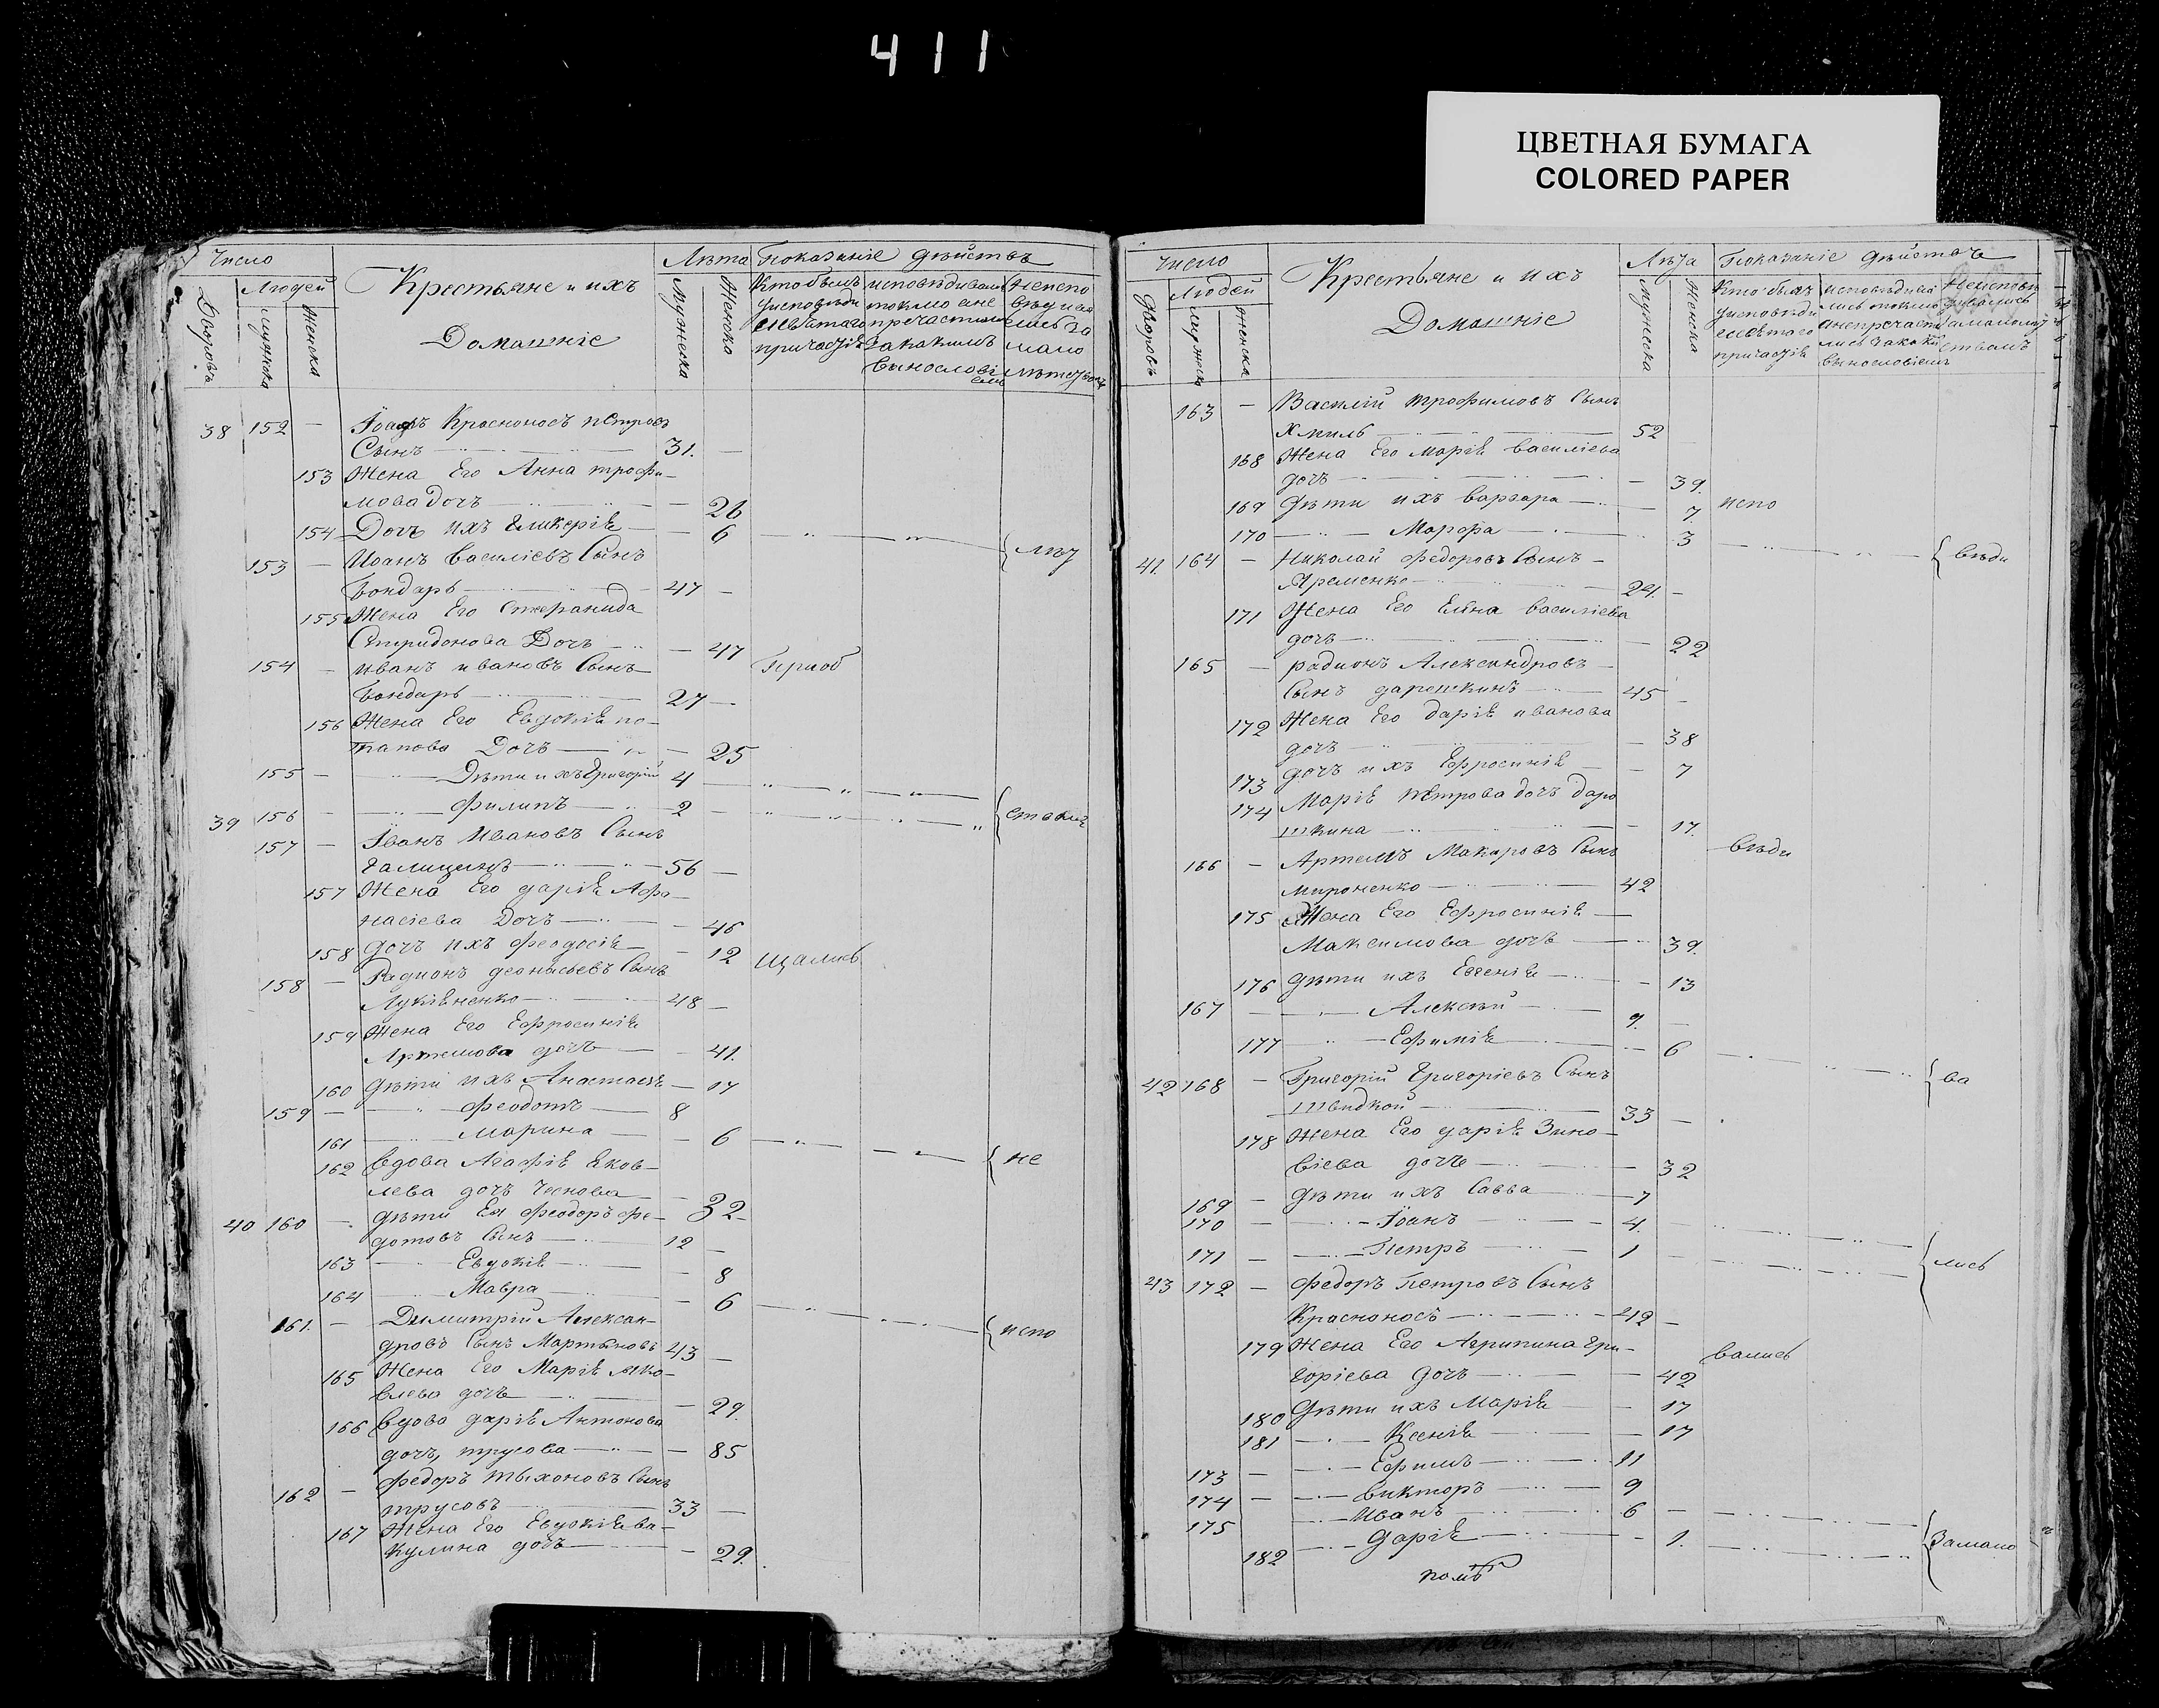 411
ЦВЕТНАЯ БУМАГА
COLORED PAPER
Число
Людей
Дворовъ
мужеска
Женска
Крестьяне и ихъ
Домашніе
Лѣта
Мужеска
Женска
Показаніе дѣйствъ
38 152 — Іоанъ Красноносъ петровъ
Сынъ — 31. —
153 Жена Его Анна трофи-
мова дочь — 26
154 Дочь ихъ Гликерія — 6 { лѣт
153 — Иоанъ Василіевъ Сынъ
Бондарь — 47 —
155 Жена Его Стефанида
Спиридонова Дочь — 47
154 — иванъ ивановъ Сынъ Приоб
Бондарь — 27 —
156 Жена Его Евдокія по-
тапова Дочь — 25
155 — Дѣти ихъ Григорій 4
39 156 — Филипъ — 2 {
157 — Іванъ Ивановъ Сынъ
Галицинъ — 56 —
157 Жена Его дарія Афа-
насіева Дочь — 46
158 дочь ихъ Феодосія — 12 щались
158 — Радионъ деонисьевъ Сынъ
Лукіяненко — 48 —
159 Жена Его Ефросинія
Артемова дочь — 41.
160 дѣти ихъ Анастасія — 17
159 — Феодотъ — 8
161 Марина — 6 { не
162 Вдова Агафія Яков-
лева дочь Чеснова — 32
40 160 — дѣти Ея Феодоръ фе-
дотовъ Сынъ — 12 —
163 Евдокія — 8
164 Мавра — 6 { испо
161. — Димитрій Алексан-
дровъ Сынъ Мартыновъ 43 —
165 Жена Его Марія яко-
влева дочь — 29.
166 Вдова дарія Антонова
дочь, трусова — 85
162 — Федоръ тыхоновъ Сынъ
трусовъ — 33 —
167 Жена Его Евдокія ва-
кулина дочь — 29.
Число
Людей
дворовъ
женска
Крестьяне и ихъ
Домашніе
Лѣта
Мужеска
Женска
Показаніе дѣйствъ
163 — Василій трофимовъ Сынъ
Хмиль — 52
168 Жена Его Марія василіева
дочь — 39.
169 Дѣти ихъ варвара — 7. испо
170 Марфа — 3 { вѣди
41. 164 — Николай федоровъ Сынъ
Яременко — 24. —
171 Жена Его Елена василіева
дочь — 22
165 — радионъ Александровъ
Сынъ — 45 —
172 Жена Его дарія иванова
дочь — 38
173 дочь ихъ Ефросинія — 7
174 Марія петрова дочь даро
шкина — 17.
166 — Артемъ Макаровъ Сынъ вѣди
мироненко — 42
175 Жена Его Ефросинія
Максимова дочь — 39.
176 дѣти ихъ Евгенія — 13
167 — Алексѣй — 9. —
177 Ефимія — 6
42 168 — Григорій Григоріевъ Сынъ { ва
швидкой — 33 —
178 Жена Его дарія Зино-
віева дочь — 32
169 — дѣти ихъ Савва — 7
170 — Іоанъ — 4.
171 — Петръ — 1 { лись
43 172 — федоръ Петровъ Сынъ
Красноносъ — 42 —
179 Жена Его Агрипина гри-
горіева дочь — 42 вались
180 Дѣти ихъ Марія — 17
181 Ксенія — 17
173 — Ефимъ — 11
174 — Викторъ — 9
175 Иванъ — 6
182 Дарія — 1. { Замало